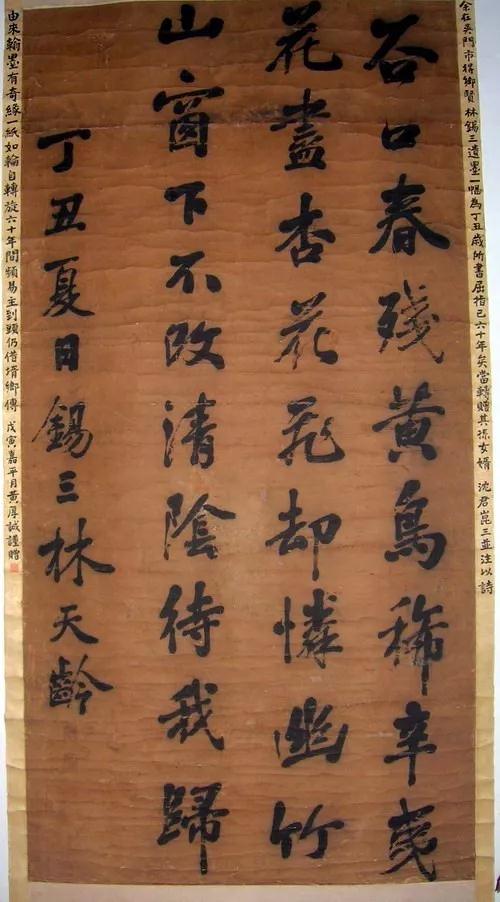 余在吳門市得鄉賢林錫三遺墨一幅為丁丑歲所書屈指已六十年矣當轉贈其孫女婿 沈君崑三並注以詩
谷口春殘黄鳥稀辛夷
花盡杏花飛却憐幽竹
山窗下不改清陰待我歸
丁丑夏日錫三林天齡
由來翰墨有奇緣一紙如輪自轉旋六十年間頻易主到頭仍借壻鄉傳 戊寅嘉平月黄厚誠謹贈